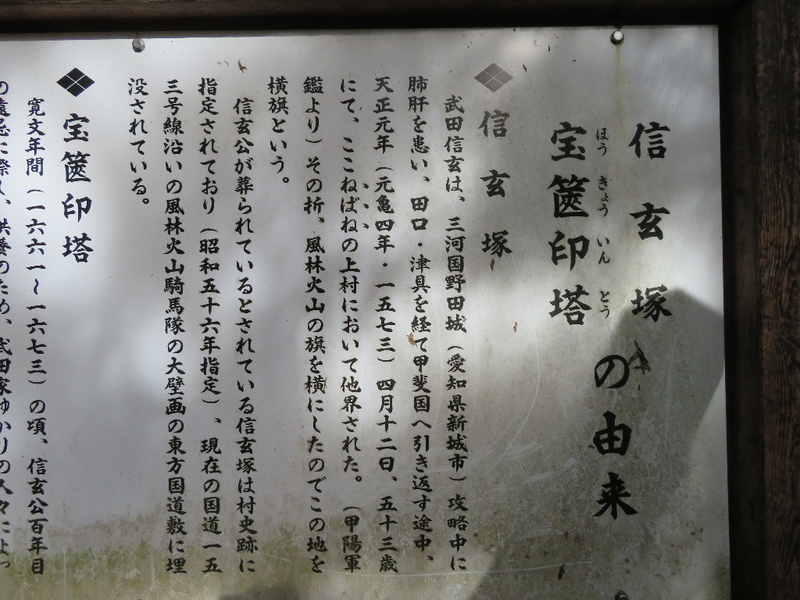 信玄塚
宝篋印塔の由来
ほうきょういんとう
信玄塚
武田信玄は、三河国野田城（愛知県新城市）攻略中に
肺肝を患い、田口・津具を経て甲斐国へ引き返す途中、
天正元年（元亀四年・一五七三）四月十二日、五十三歳
にて、ここねばねの上村において他界された。（甲陽軍
鑑より）その折、風林火山の旗を横にしたのでこの地を
横旗という。
信玄公が葬られているとされている信玄塚は村史跡に
指定されており（昭和五十六年指定）、現在の国道一五
三号線沿いの風林火山騎馬隊の大壁画の東方国道敷に埋
没されている。
宝篋印塔
寛文年間（一六六一～一六七三）の頃、信玄公百年目
の遠忌に際し、供養のため、武田家ゆかりの人々によっ